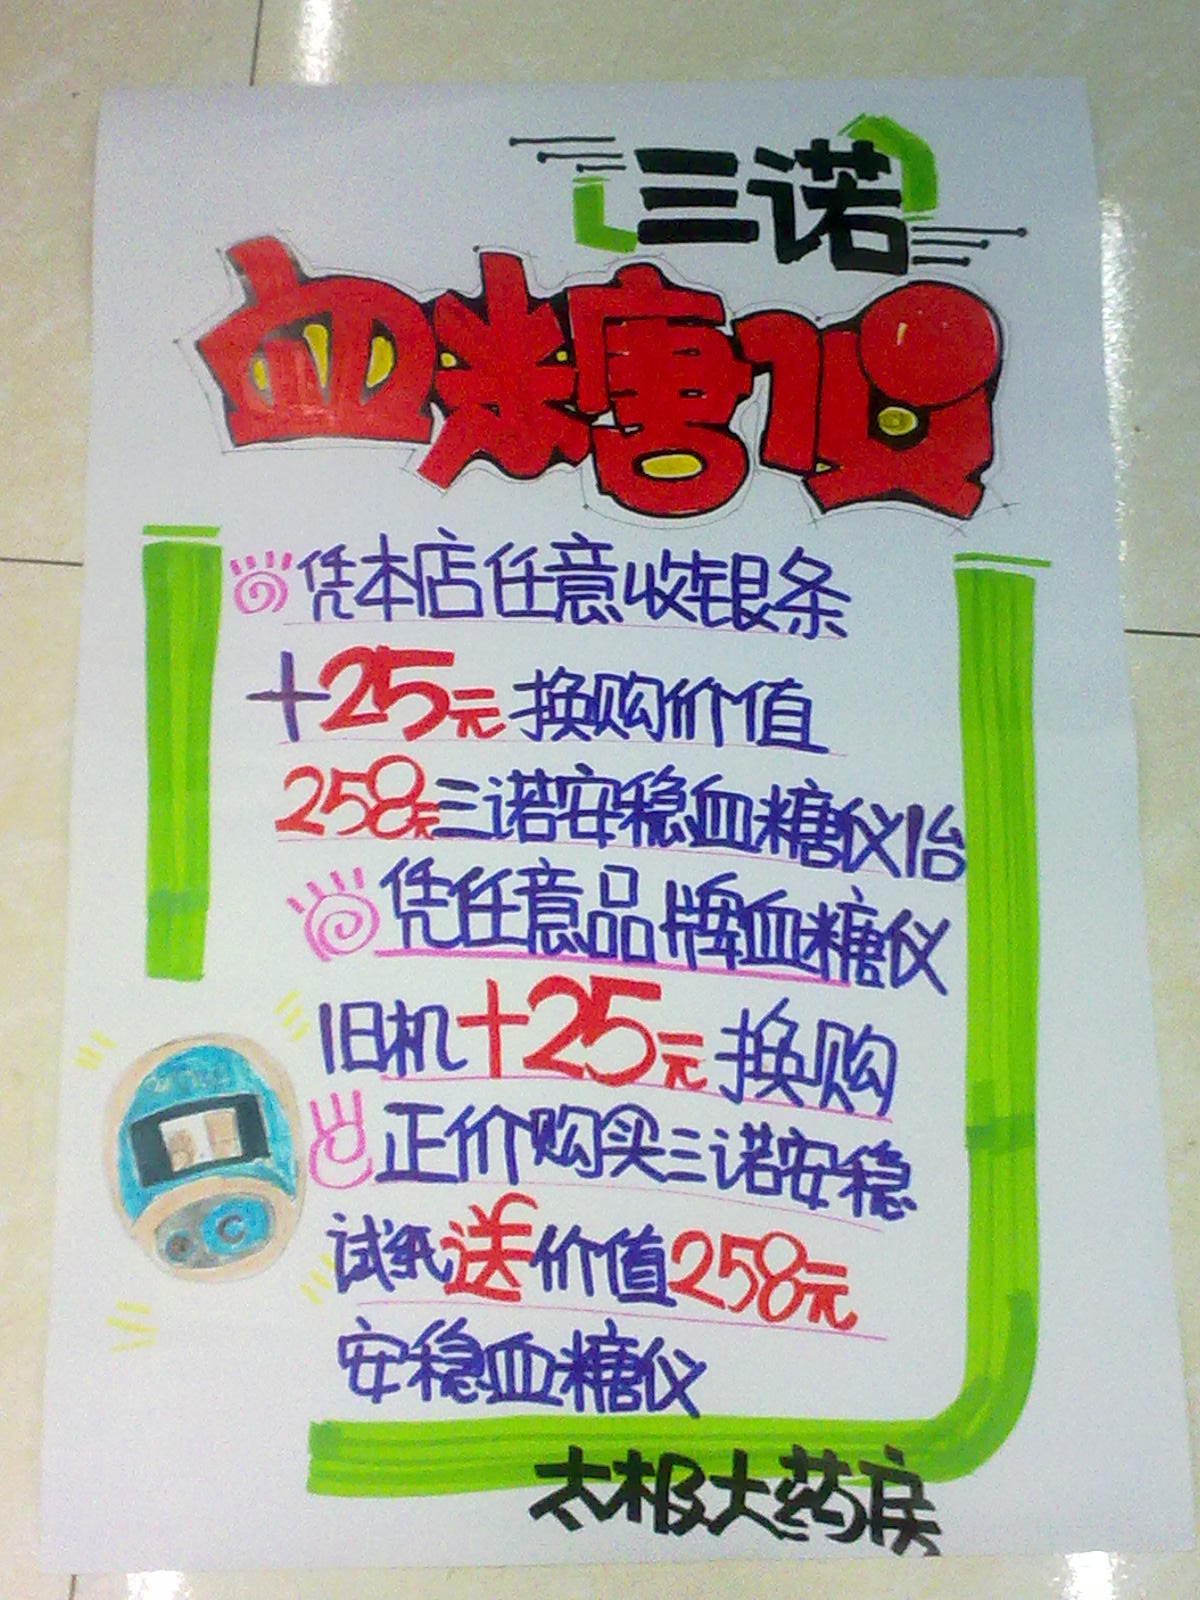 三诺
血糖仪
凭本店任意收银条
+25元换购价值
258元三诺安稳血糖仪1台
凭任意品牌血糖仪
旧机+25元换购
正价购买三诺安稳
试纸送价值258元
安稳血糖仪
太极大药房